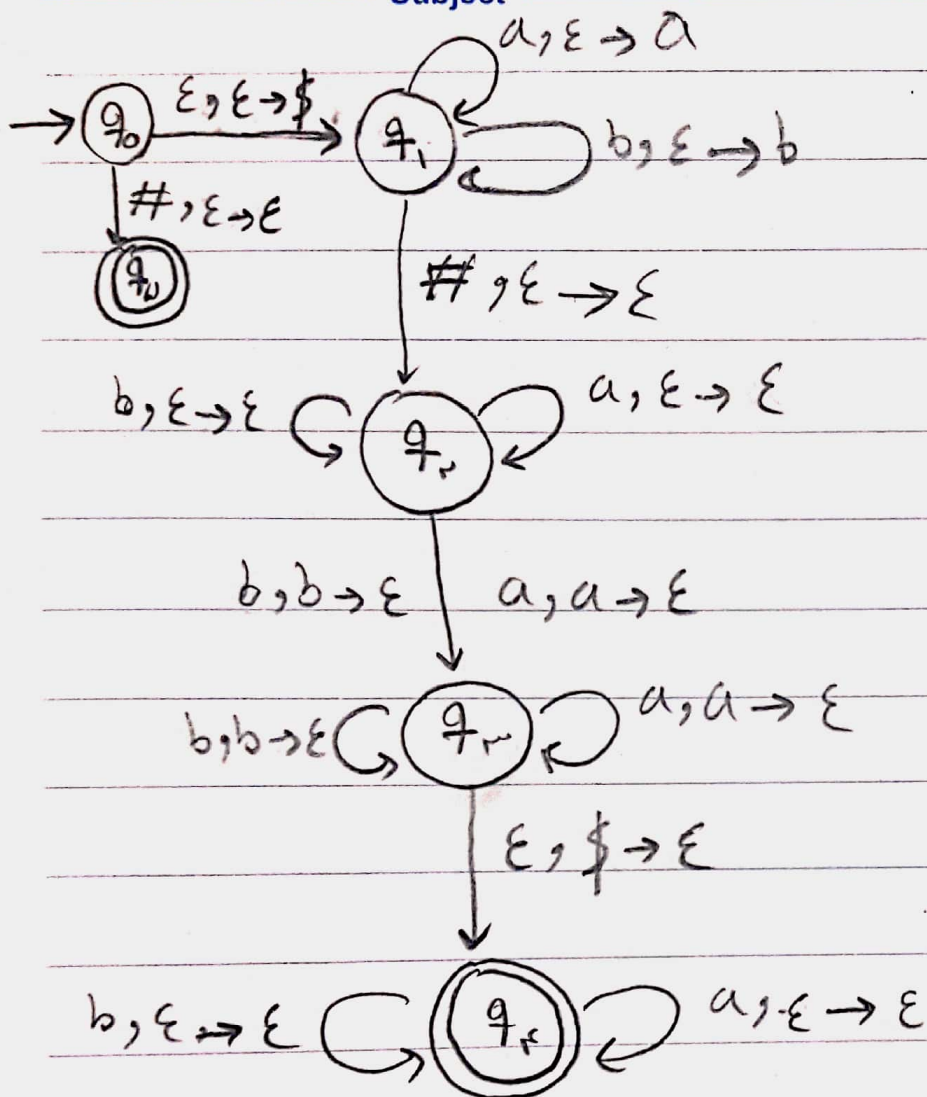 Subject
a, ε → a
→ q₀ ε, ε → $ q₁
b, ε → b
#, ε → ε
#, ε → ε
b, ε → ε q۲ a, ε → ε
b, b → ε a, a → ε
b, b → ε q۳ a, a → ε
ε, $ → ε
b, ε → ε q۴ a, ε → ε